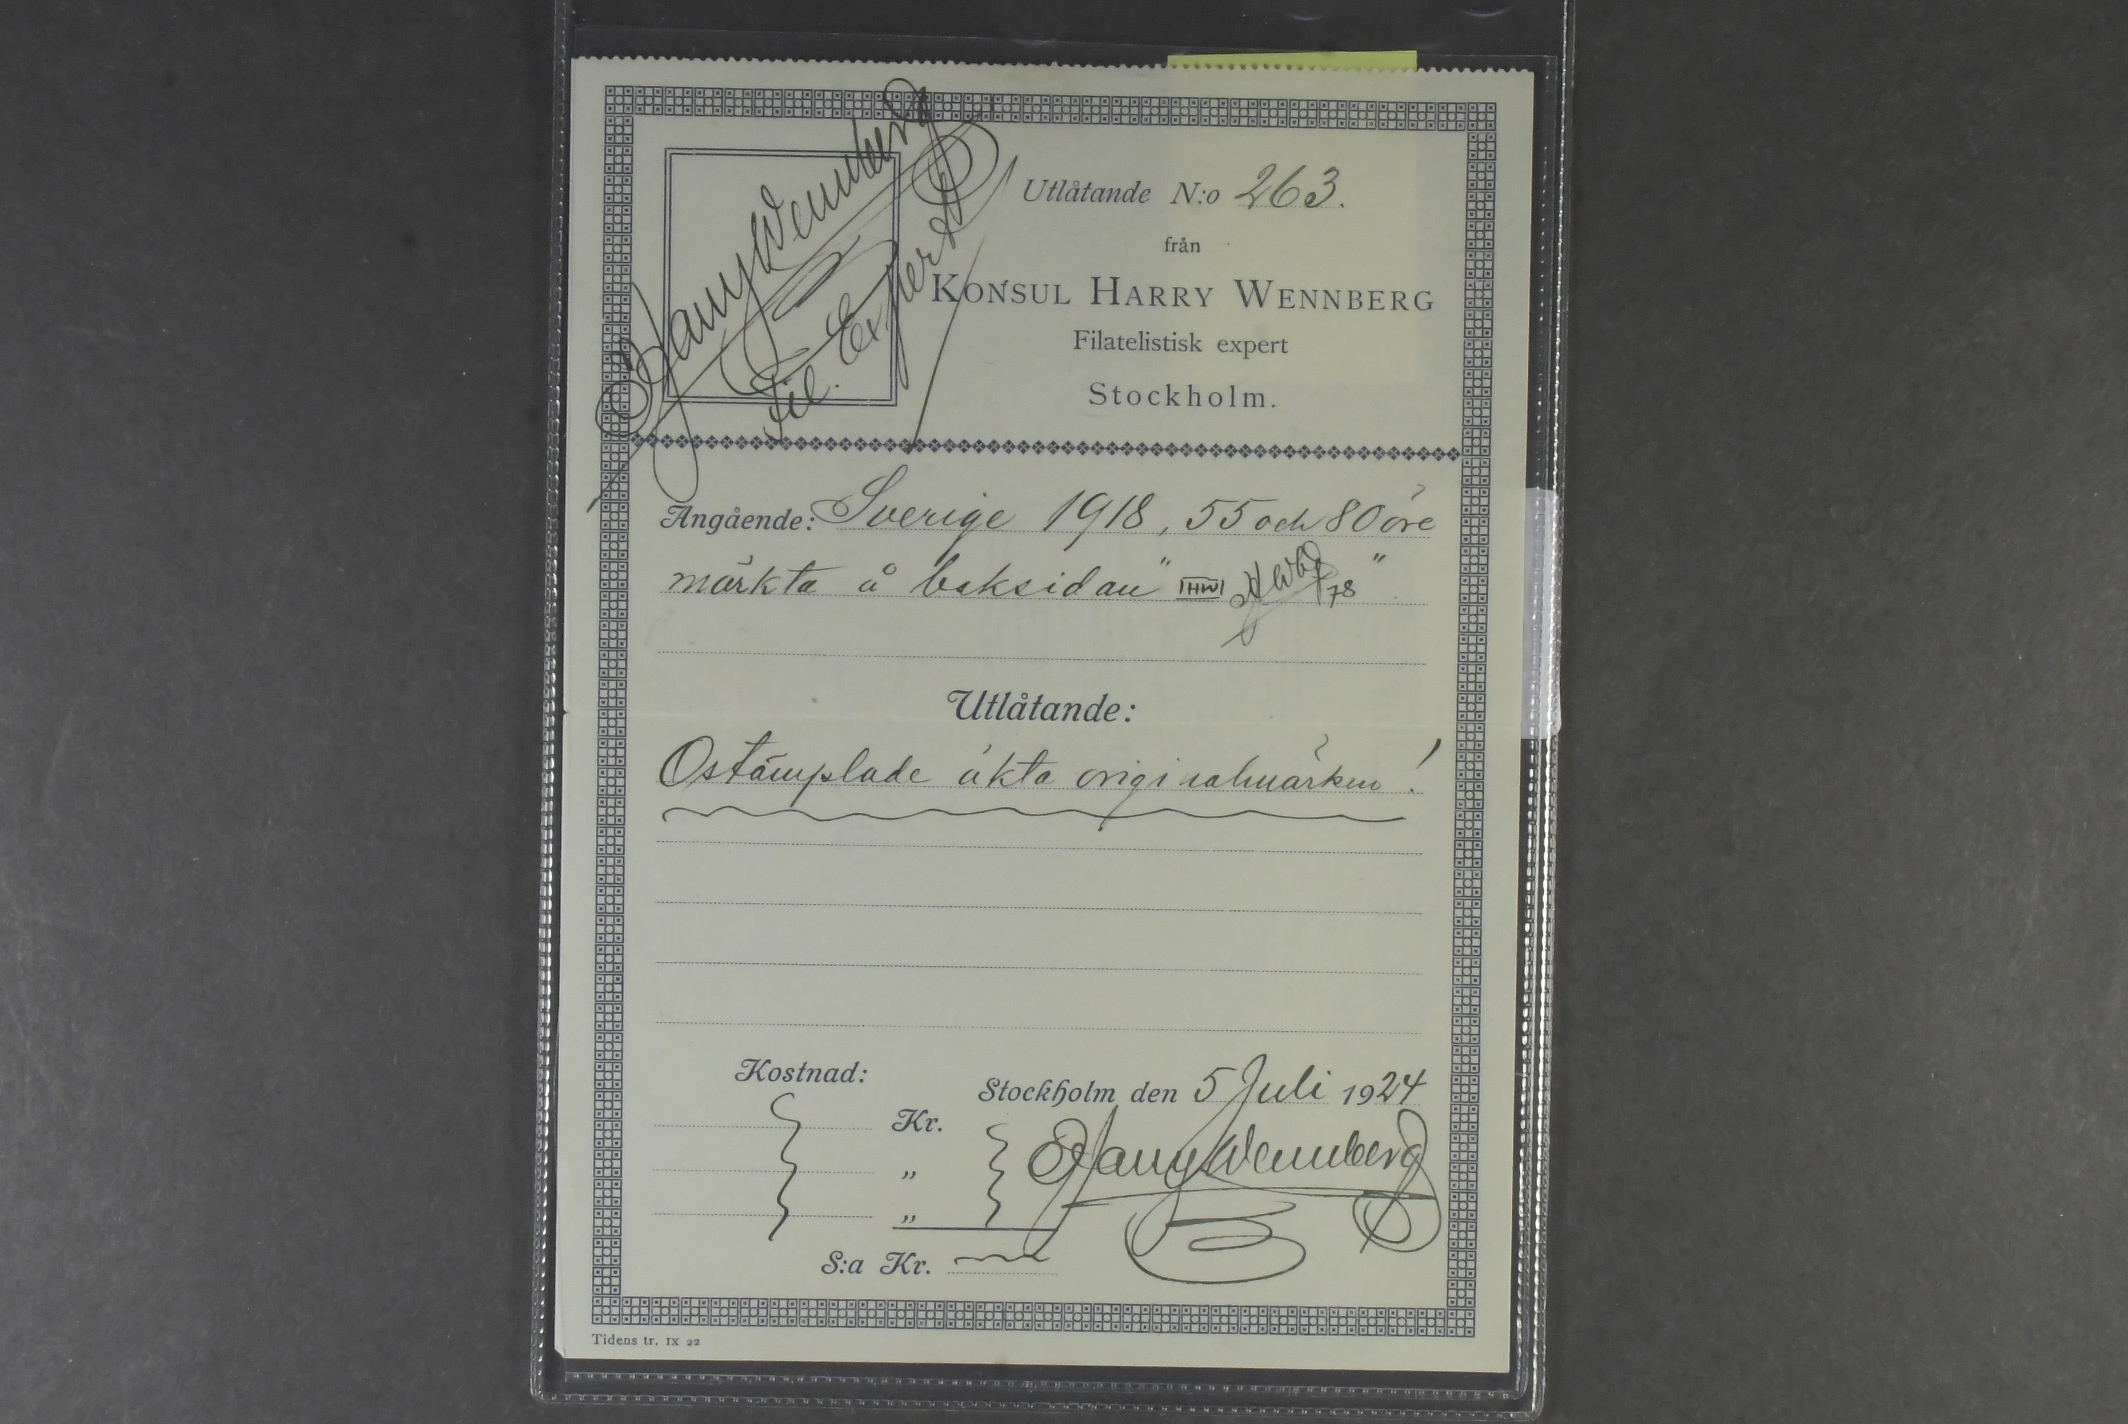 Harry Wennberg
Fil. Expert
Utlåtande N:o 263.
från
KONSUL HARRY WENNBERG
Filatelistisk expert
Stockholm.
Angående: Sverige 1918, 55 och 80 öre
märkta å baksidan " HW HWbg 78 "
Utlåtande:
Ostämplade äkta originalmärken!
Kostnad:
Stockholm den 5 Juli 1924
Kr.
Harry Wennberg
"
"
S:a Kr.
Tidens tr. IX 22